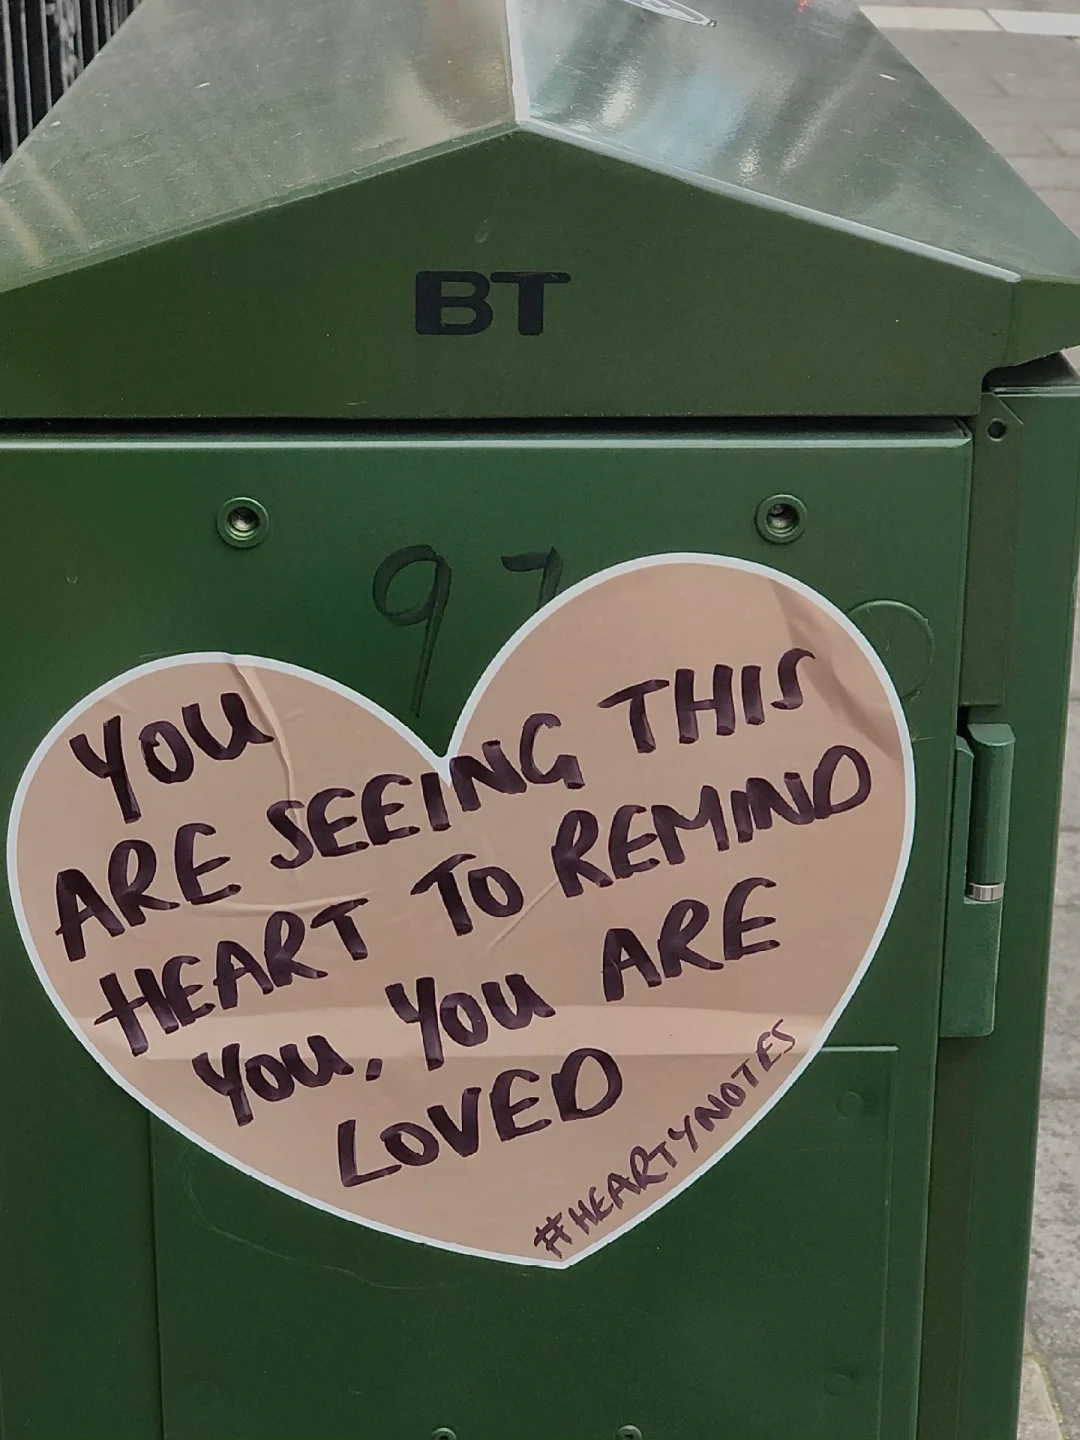 BT
97
YOU
ARE SEEING THIS
HEART TO REMIND
YOU, YOU ARE
LOVED
#HEARTYNOTES